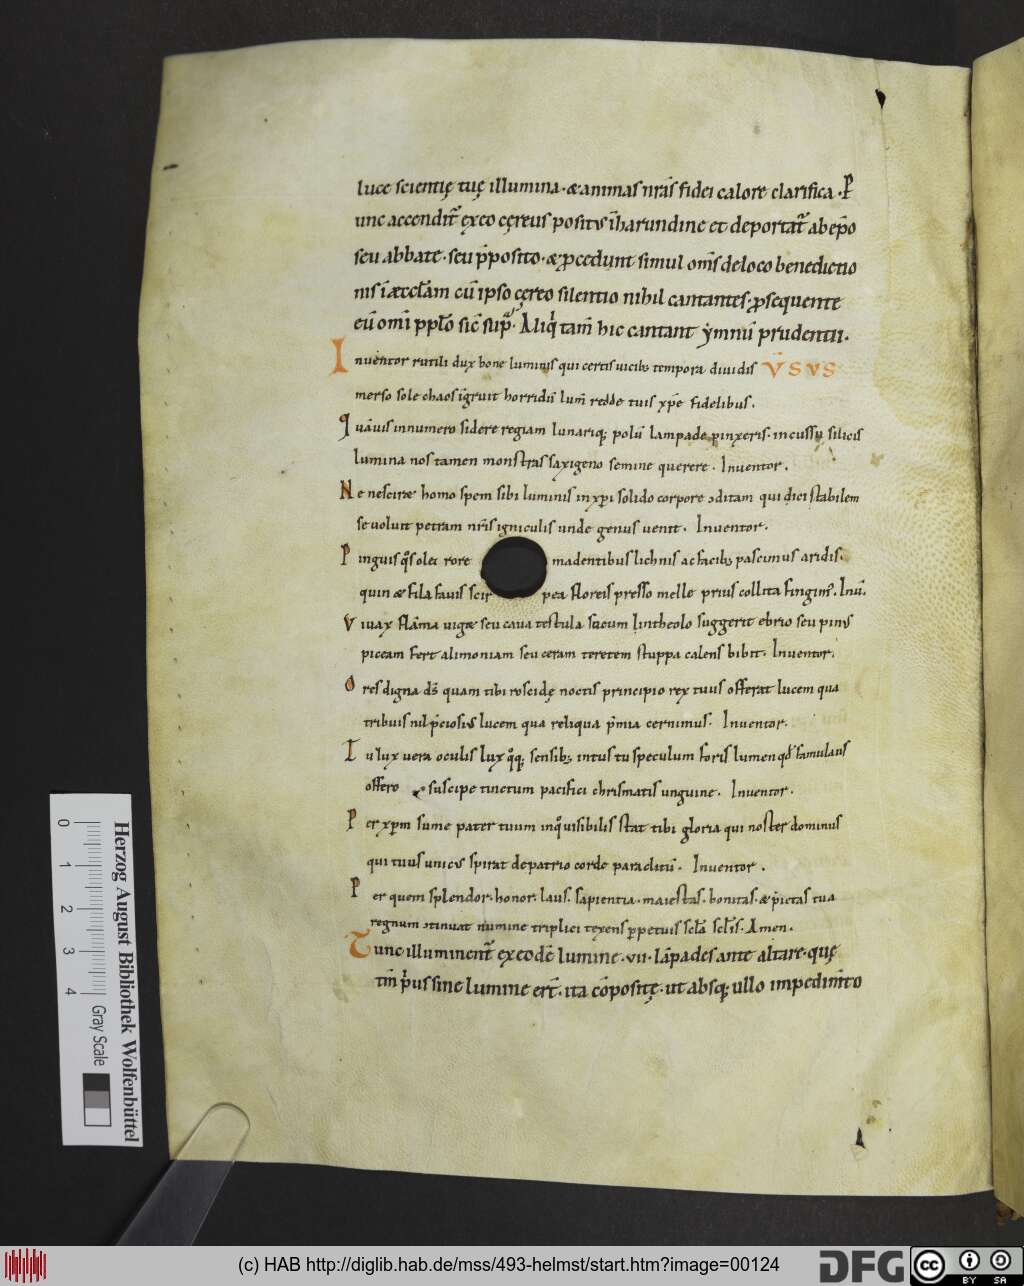 luce scientię tuę illumina · & animas nr̄as fidei calore clarifica · P
unc accendit̄ ex eo cęreus positus ī harundine et deportat̄ ab ep̄o
seu abbate · seu p̄posito · & pcedunt simul om̄s de loco benedictio
nis ī æccl̄am cū ipso cęreo silentio nihil cantantes · psequente
eū om̄i pp̄lo sic̄ sup̄ª · Aliq̇ tam̄ hic cantant ẏmnū prudentii ·
Inventor rutili dux bone luminis qui certis uicib; tempora diuidis VSVS
merso sole chaos īgruit horridū lum̄ redde tuis xp̄e fidelibus .
quāuis innumero sidere regiam lunariq; polū lampade pinxeris · incussu silicis
lumina nos tamen monstras saxigeno semine querere . Inuentor .
Ne nesciræ homo spem sibi luminis in xp̄i solido corpore ɔditam qui dici stabilem
se uoluit petram nr̄is igniculis unde genus uenit . Inuentor .
Pinguis q̄s olei rore madentibus lichnis ac facib; pascimus aridis .
quin & fila fauis scir pea floreis presso melle prius collita fingim᷒ . Inū.
Viuax flāma uigæ seu caua testula sucum lintheolo suggerit ebrio seu pinus
piceam fert alimoniam seu ceram teretem stuppa calens bibit . Inuentor .
O res digna ds̄ quam tibi roscidę noctis principio rex tuus offerat lucem qua
tribuis nil p̄ciosius lucem qua reliqua p̄mia cernimus . Inuentor .
Tu lux uera oculis lux q̊q; sensib; intus tu speculum foris lumen qd̄ famulans
offero suscipe tinctum pacifici chrismatis unguine . Inuentor .
Per xp̄m sume pater tuum inq̊ uisibilis stat tibi gloria qui noster dominus
qui tuus unicus spirat de patrio corde paraclitū . Inuentor .
Per quem splendor · honor · laus · sapientia · maiestas · bonitas · & pietas tua
regnum ɔtinuat numine triplici texens ppetuis scl̄a scl̄is . Amen .
Tunc illuminent̄ ex eodē lumine · vii · lāpades ante altare · quę
tm̄ p̄us sine lumine ert̄ · ita cōpositę · ut absq; ullo impedim̄to
Herzog August Bibliothek Wolfenbüttel
0 1 2 3 4 Gray Scale
(c) HAB http://diglib.hab.de/mss/493-helmst/start.htm?image=00124
DFG
cc BY SA